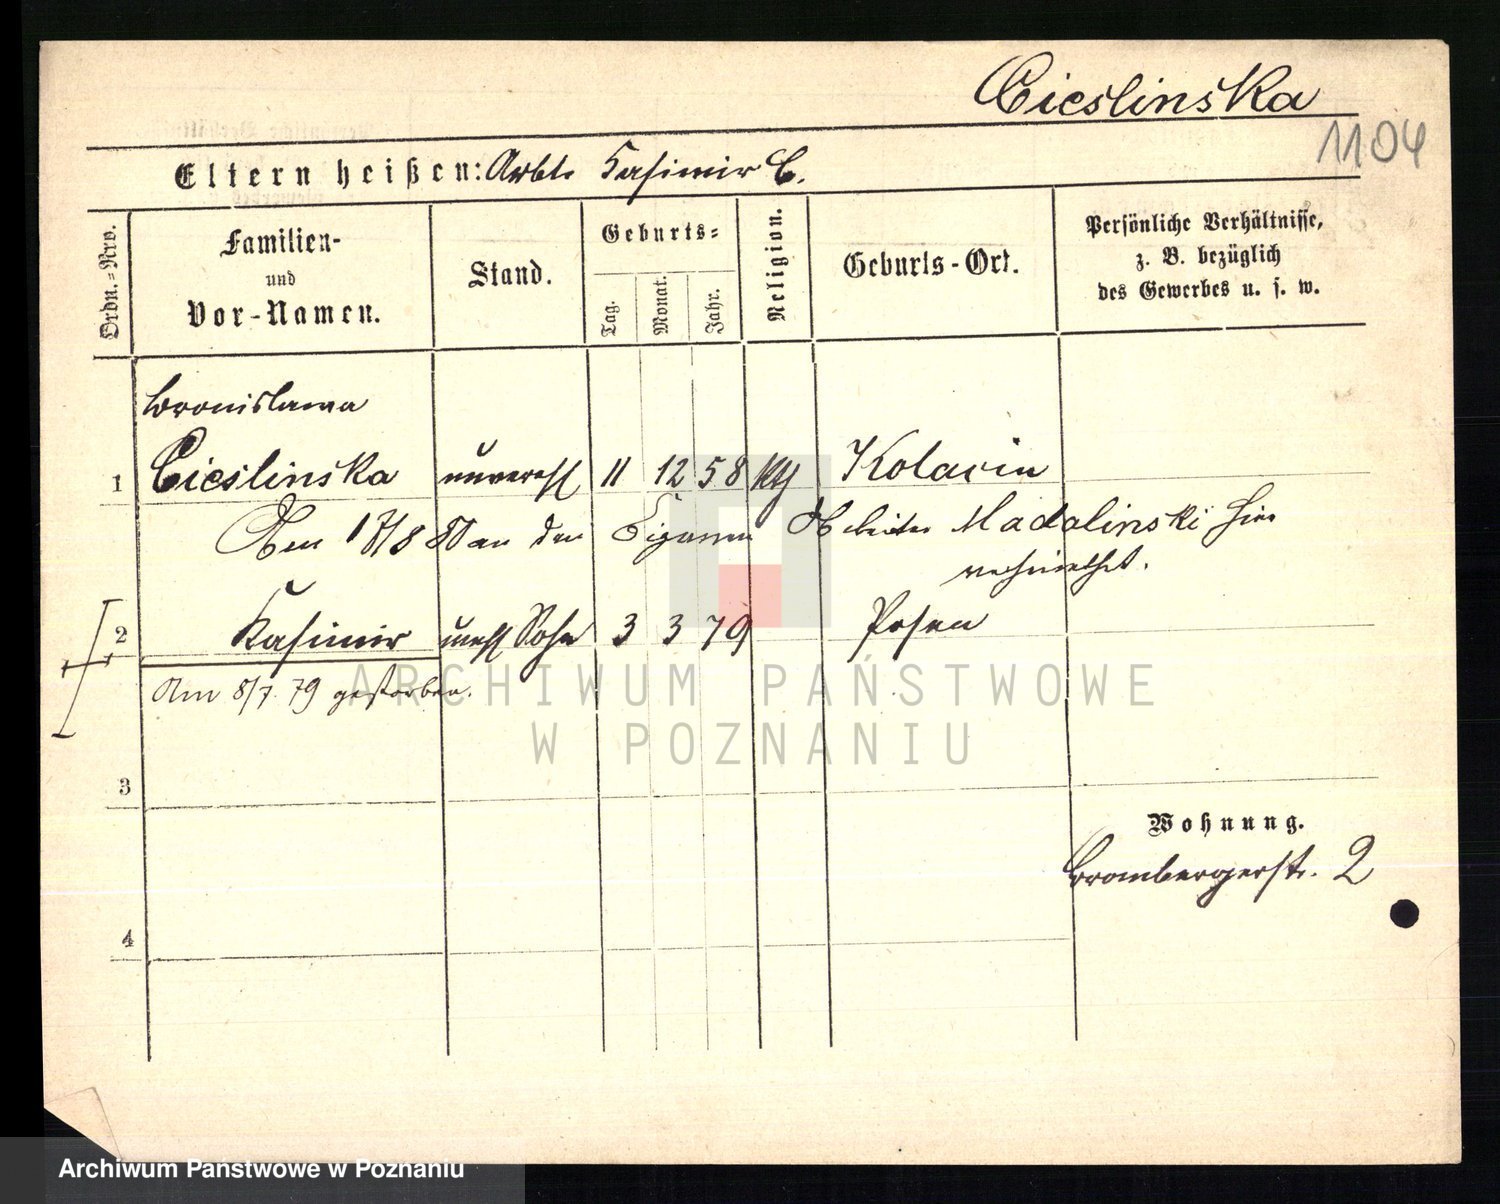 Cieslinska
1104
Eltern heißen: Arbtr Casimir C.
Ordn.=Nro.
Familien-
und
Vor-Namen.
Stand.
Geburts=
Tag.
Monat.
Jahr.
Religion.
Geburts-Ort.
Persönliche Verhältnisse,
z. B. bezüglich
des Gewerbes u. s. w.
Bronislawa
1 Cieslinska unverehl 11 12 58 kth
Am 17/8 80 an den Arbeiter Madalinski hier
verheirathet.
2 Kasimir unehl Sohn 3 3 79 Posen
Am 8/7. 79 gestorben.
ARCHIWUM PAŃSTWOWE
W POZNANIU
3
Wohnung.
Brombergerstr. 2
4
Archiwum Państwowe w Poznaniu